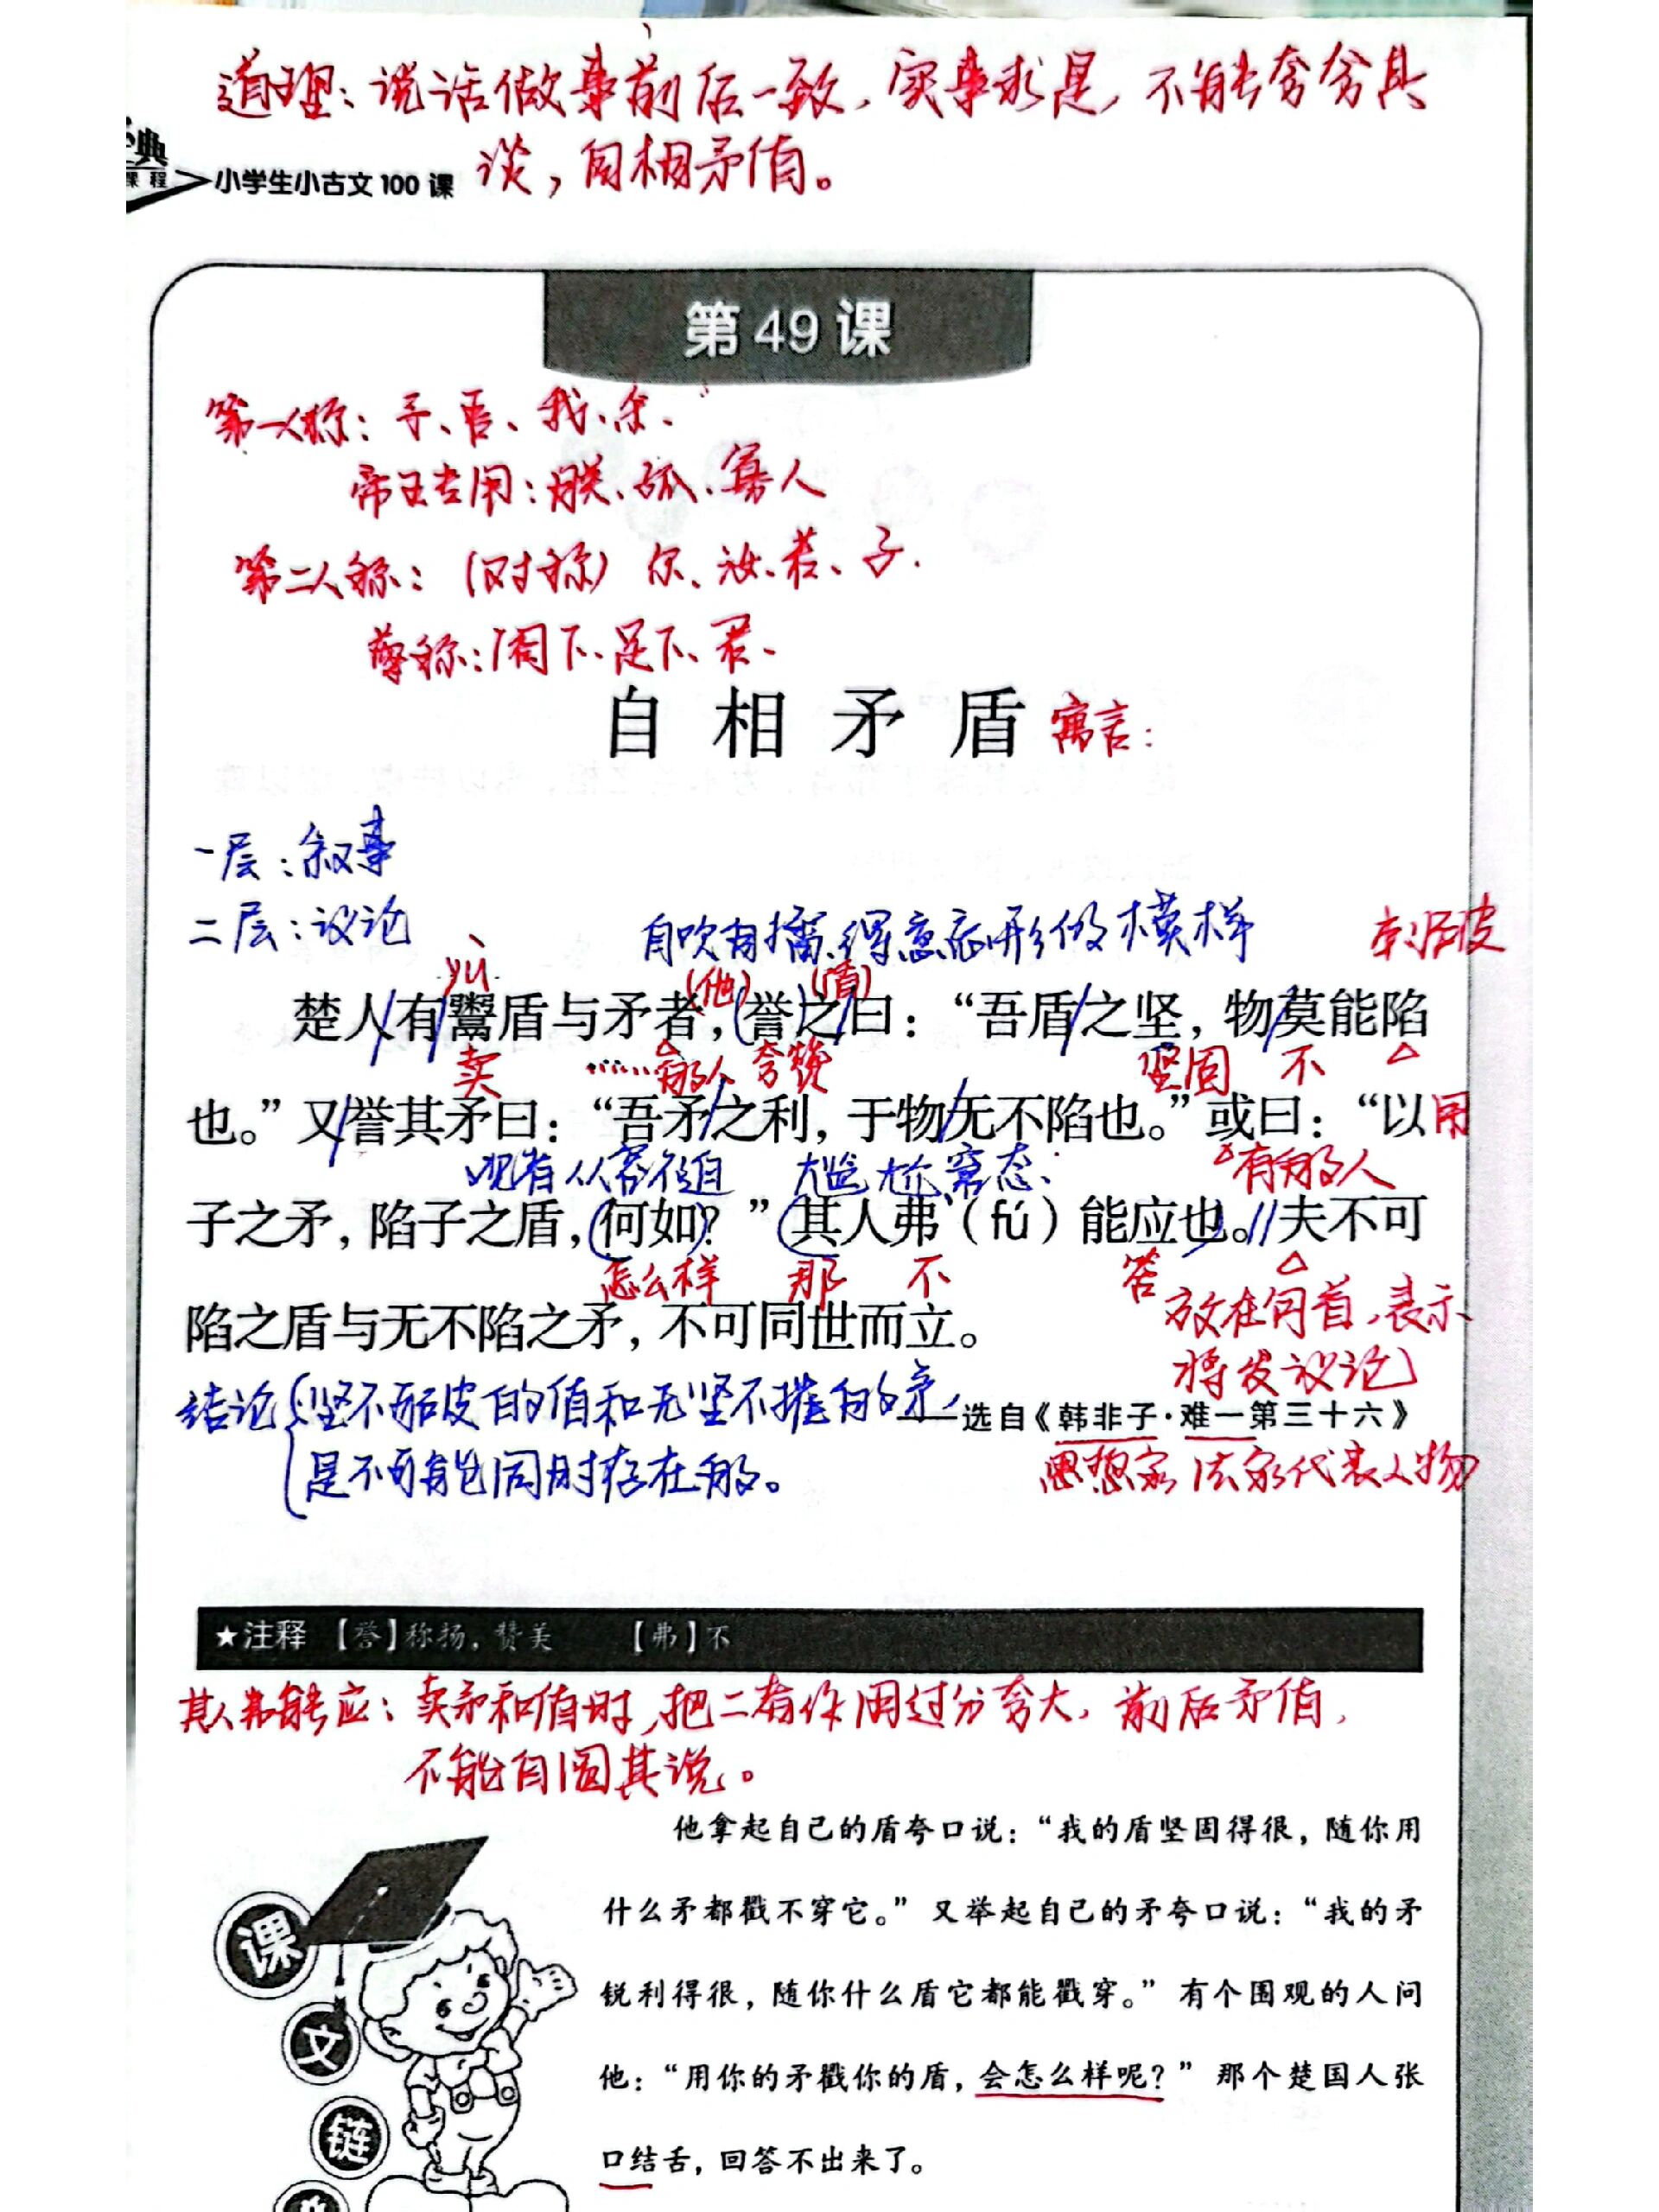 道理：说话做事前后一致，实事求是，不能夸夸其
谈，自相矛盾。
典
课程
小学生小古文100课
第49课
第一人称：予、吾、我、余、
帝王专用：朕、孤、寡人
第二人称：（对称）尔、汝、若、子.
尊称：阁下、足下、君、
自相矛盾 寓言：
一层：叙事
二层：议论
自吹自擂、得意忘形的模样
刺破
yù
（他）
（盾）
楚人有鬻盾与矛者，誉之曰：“吾盾之坚，物莫能陷
卖
……的人 夸赞
坚固 不
也。”又誉其矛曰：“吾矛之利，于物无不陷也。”或曰：“以用
观者从容不迫 尴尬窘态：
有的人
子之矛，陷子之盾，何如？”其人弗（fú）能应也。//夫不可
怎么样 那 不 答
放在句首，表示
陷之盾与无不陷之矛，不可同世而立。
将发议论
结论 坚不可破的盾和无坚不摧的矛，
——选自《韩非子·难一第三十六》
是不可能同时存在的。
思想家 法家代表人物
★注释 【誉】称扬，赞美 【弗】不
其人弗能应：卖矛和盾时，把二者作用过分夸大，前后矛盾，
不能自圆其说。
他拿起自己的盾夸口说：“我的盾坚固得很，随你用
什么矛都戳不穿它。”又举起自己的矛夸口说：“我的矛
锐利得很，随你什么盾它都能戳穿。”有个围观的人问
他：“用你的矛戳你的盾，会怎么样呢？”那个楚国人张
口结舌，回答不出来了。
课
文
链